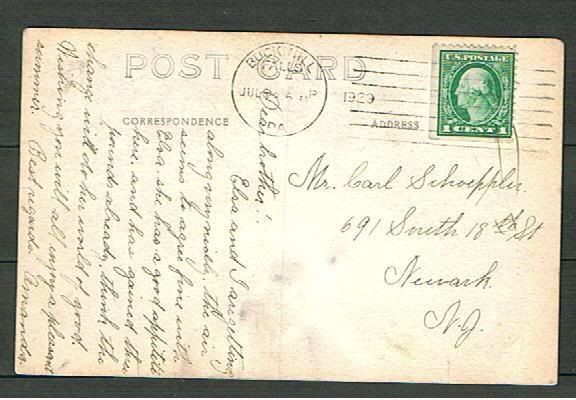 POST CARD
BUCK HILL
FALLS
JUL
P
1929
PA.
U.S. POSTAGE
1 CENT 1
CORRESPONDENCE
ADDRESS
Dear brother!
Elsa and I are getting
along very nicely, the air
seems to agree fine with
Elsa, she has a good appetite
here, and has gained three
pounds already, think the
change will do her world of good
Wishing you will all enjoy a pleasant
summer. Best regards. Amanda.
Mr. Carl Schoeppler.
691 South 18th St
Newark.
N.J.